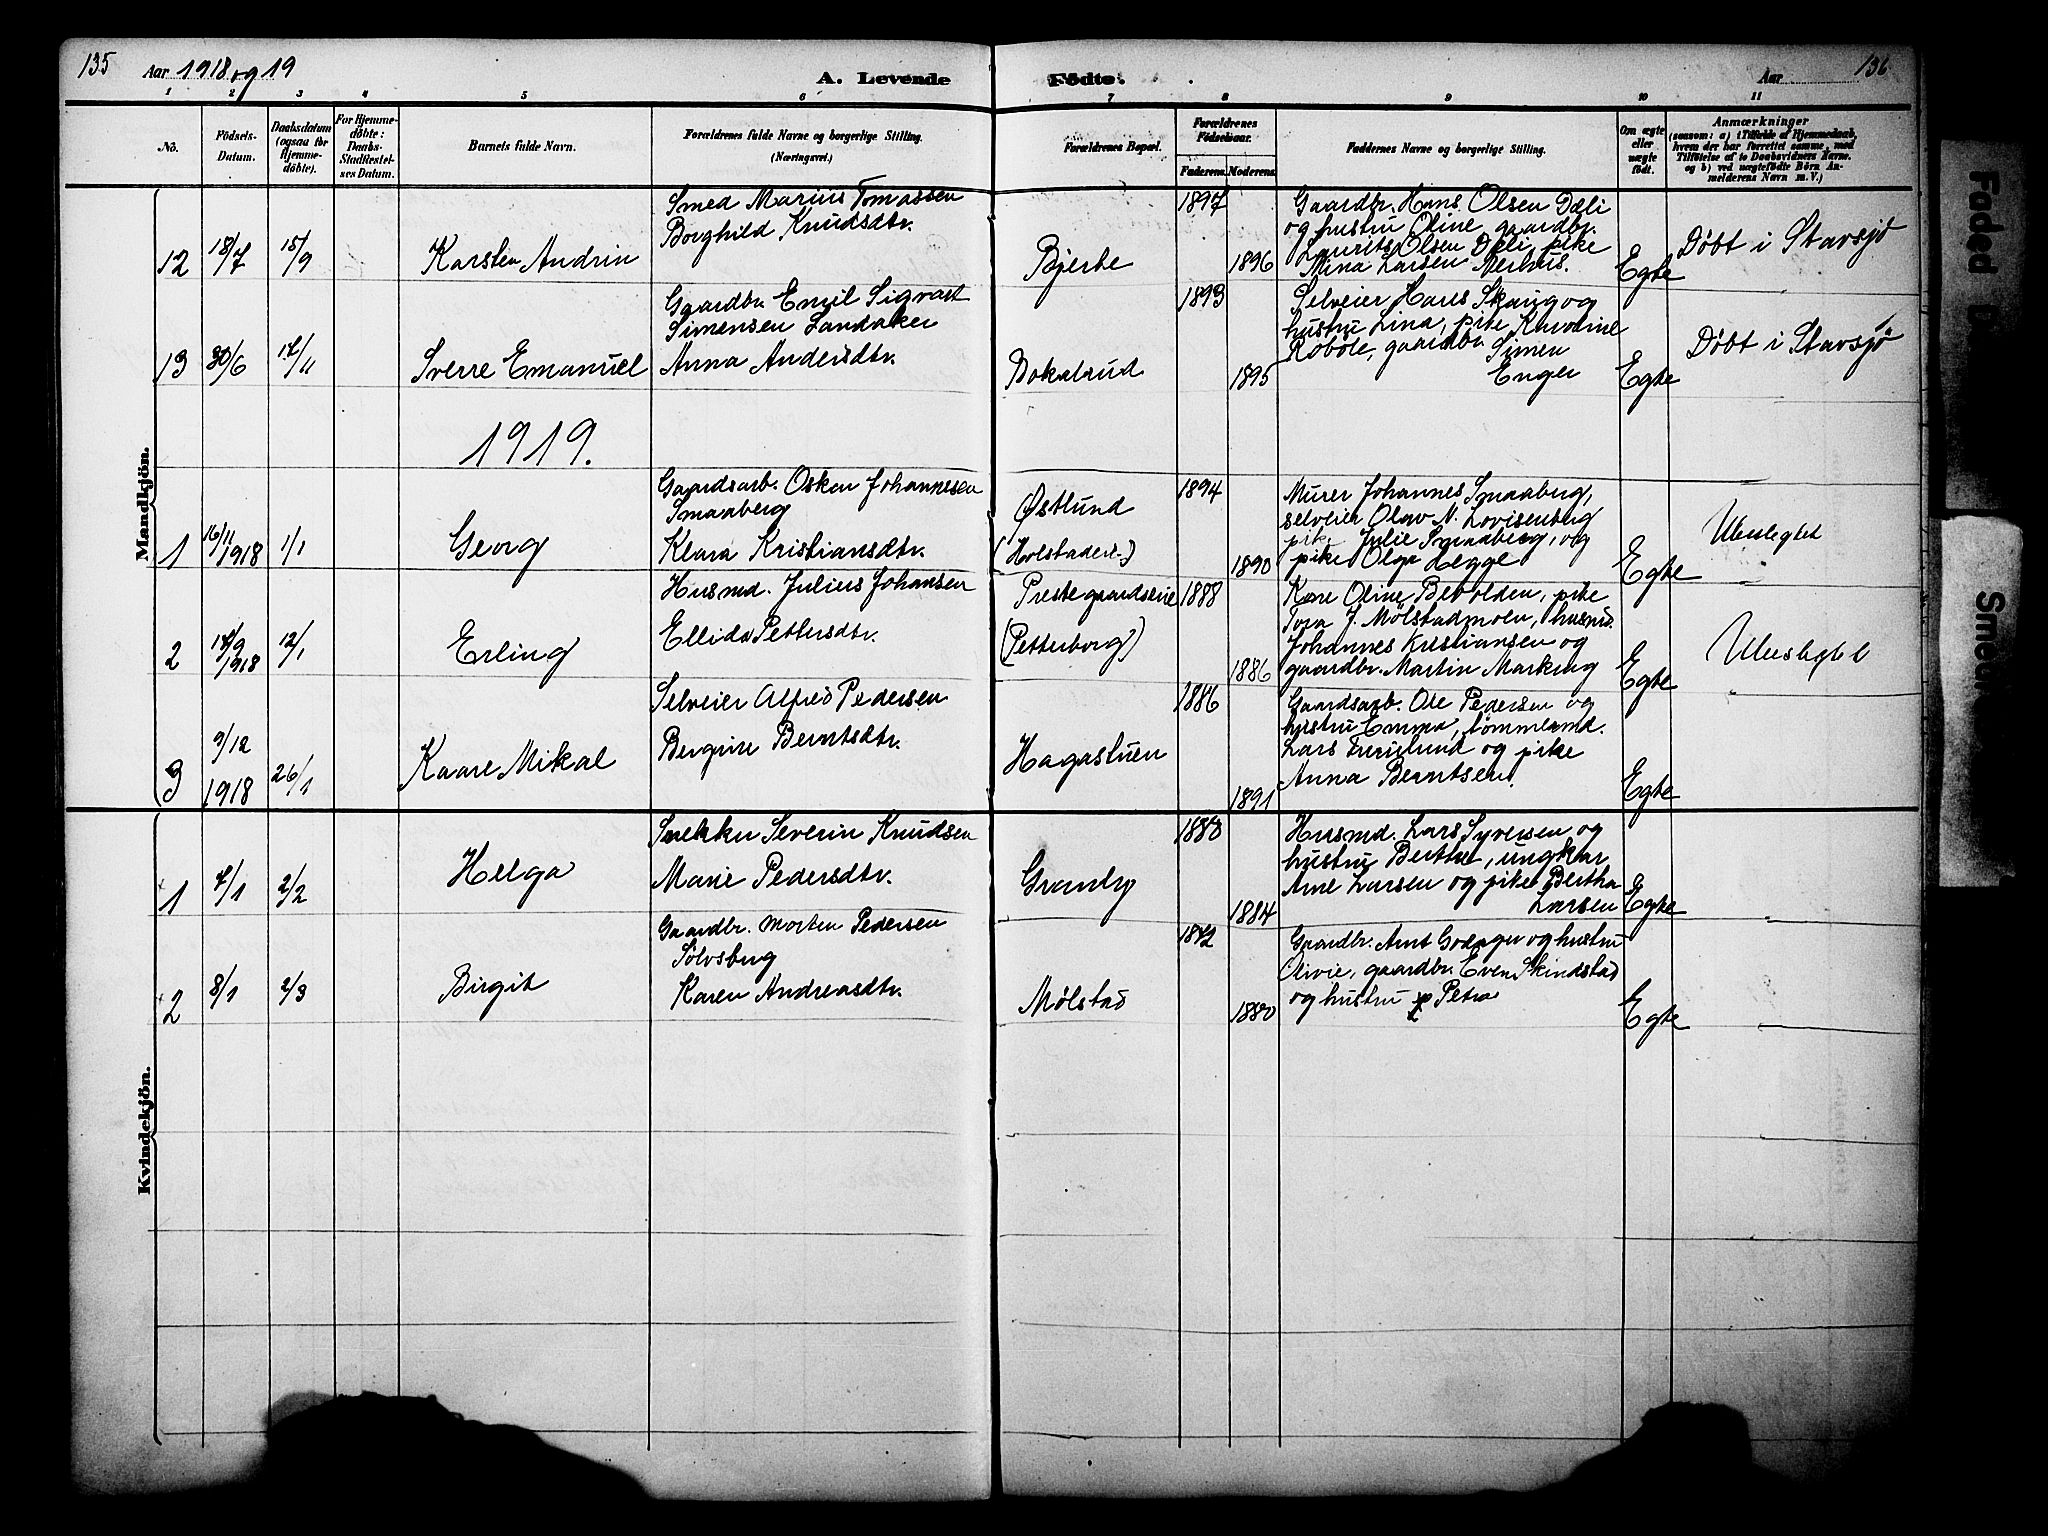 135 Aar 1918 og 19 A. Levende Födte. Aar 136
1 2 3 4 5 6 7 8 9 10 11
No.
Födsels-Datum.
Daabsdatum (ogsaa for Hjemmedöbte).
For Hjemmedöbte: Daabs-Stadfestelses Datum.
Barnets fulde Navn.
Forældrenes fulde Navne og borgerlige Stilling. (Næringsvei.)
Forældrenes Bopæl.
Forældrenes Födselsaar.
Faderens. Moderens.
Faddernes Navne og borgerlige Stilling.
Om ægte eller uægte födt.
Anmærkninger
(saasom: a) i Tilfælde af Hjemmedaab,
hvem der har forrettet samme, med
Tilföielse af to Daabsvidners Navne,
og b) ved uægtefödte Börn Anmelderens Navn m. V.)
Mandkjön.
12 18/7 15/9 Karsten Andrin
Smed Marius Tomassen
Borghild Knudsdtr.
Bjerke
1897
1896
Gaardbr. Hans Olsen Dæli
og hustru Oline, gaardbr.
Laurits Olsen Dæli, pike
Mina Larsen
Egte
Døbt i Stavsjø
13 30/6 17/11 Sverre Emanuel
Gaardbr. Emil Sigvart
Simensen Landaker
Anna Andersdtr.
Bokalrud
1893
1895
Selveier Hans Skaug og
hustru Lina, pike Karoline
Robøle, gaardbr. Simen
Enger
Egte
Døbt i Stavsjø
1919.
1 16/11 1918 1/1 Georg
Gaardsarb. Oskar Johannesen
Smaaberg
Klara Kristiansdtr.
Østlund
(Holstaderl.)
1894
1890
Murer Johannes Smaaberg,
selveier Olav N. Lovisenberg
pike Julie Smaaberg, og
pike Olga Legge
Egte
Ubeslegtet
2 14/9 1918 12/1 Erling
Husmd. Julius Johansen
Ellida Pettersdtr.
Prestegaardseie
(Petterborg)
1888
1886
Kone Oline Bekolden, pike
Tora J. Mølstadmoen, husm.
Johannes Kristiansen og
gaardbr. Martin Markeng
Egte
Ubeslegtet
3 9/12 1918 26/1 Kaare Mikal
Selveier Alfred Pedersen
Bergine Berntsdtr.
Hagastuen
1886
1891
Gaardsarb. Ole Pedersen og
hustru Emma, tømmermd.
Lars og pike
Anna Berntsen.
Egte
Kvindekjön.
1 7/1 2/2 Helga
Snekker Severin Knudsen
Marie Pedersdtr.
Granby
1880
1884
Husmd. Lars Syversen og
hustru Berthe, ungkar
Arne Larsen og pike Bertha
Larsen
Egte
2 8/1 2/3 Birgit
Gaardbr. Morten Pedersen
Sølvsberg
Karen Andreasdtr.
Mølstad
1872
1880
Gaardbr. Arnt Grænger og hustru
Olivie, gaardbr. Even Skindstad
og hustru Petra
Egte